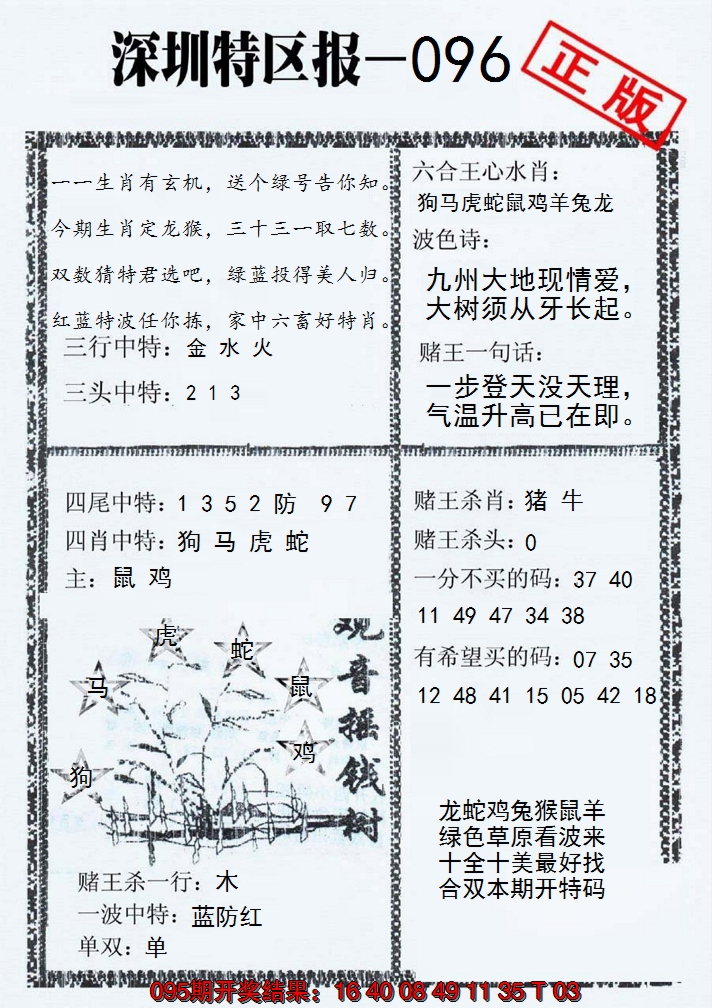 深圳特区报—096
正版
一一生肖有玄机，送个绿号告你知。
今期生肖定龙猴，三十三一取七数。
双数猜特君选吧，绿蓝投得美人归。
红蓝特波任你拣，家中六畜好特肖。
三行中特：金 水 火
三头中特：2 1 3
六合王心水肖：
狗马虎蛇鼠鸡羊兔龙
波色诗：
九州大地现情爱，
大树须从牙长起。
赌王一句话：
一步登天没天理，
气温升高已在即。
四尾中特：1 3 5 2 防 9 7
四肖中特：狗 马 虎 蛇
主：鼠 鸡
虎
蛇
马
鼠
鸡
狗
观音摇钱树
赌王杀一行：木
一波中特：蓝防红
单双：单
赌王杀肖：猪 牛
赌王杀头：0
一分不买的码：37 40
11 49 47 34 38
有希望买的码：07 35
12 48 41 15 05 42 18
龙蛇鸡兔猴鼠羊
绿色草原看波来
十全十美最好找
合双本期开特码
095期开奖结果：16 40 08 49 11 35 T 03